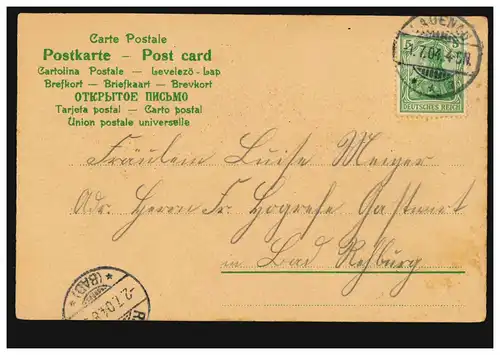 Carte Postale
Postkarte – Post card
Cartolina Postale – Levelező-Lap
Brefkort – Briefkaart – Brevkort
ОТКРЫТОЕ ПИСЬМО
Tarjeta postal – Carto postal
Union postale universelle
LAUENAU
1.7.04. 4-5N.
5 5
DEUTSCHES REICH
Fräulein Luise Meyer
Adr. Herrn Fr. Hogrefe Gastwirt
in Bad Rehburg
(BAD)
-2.7.04.8
R